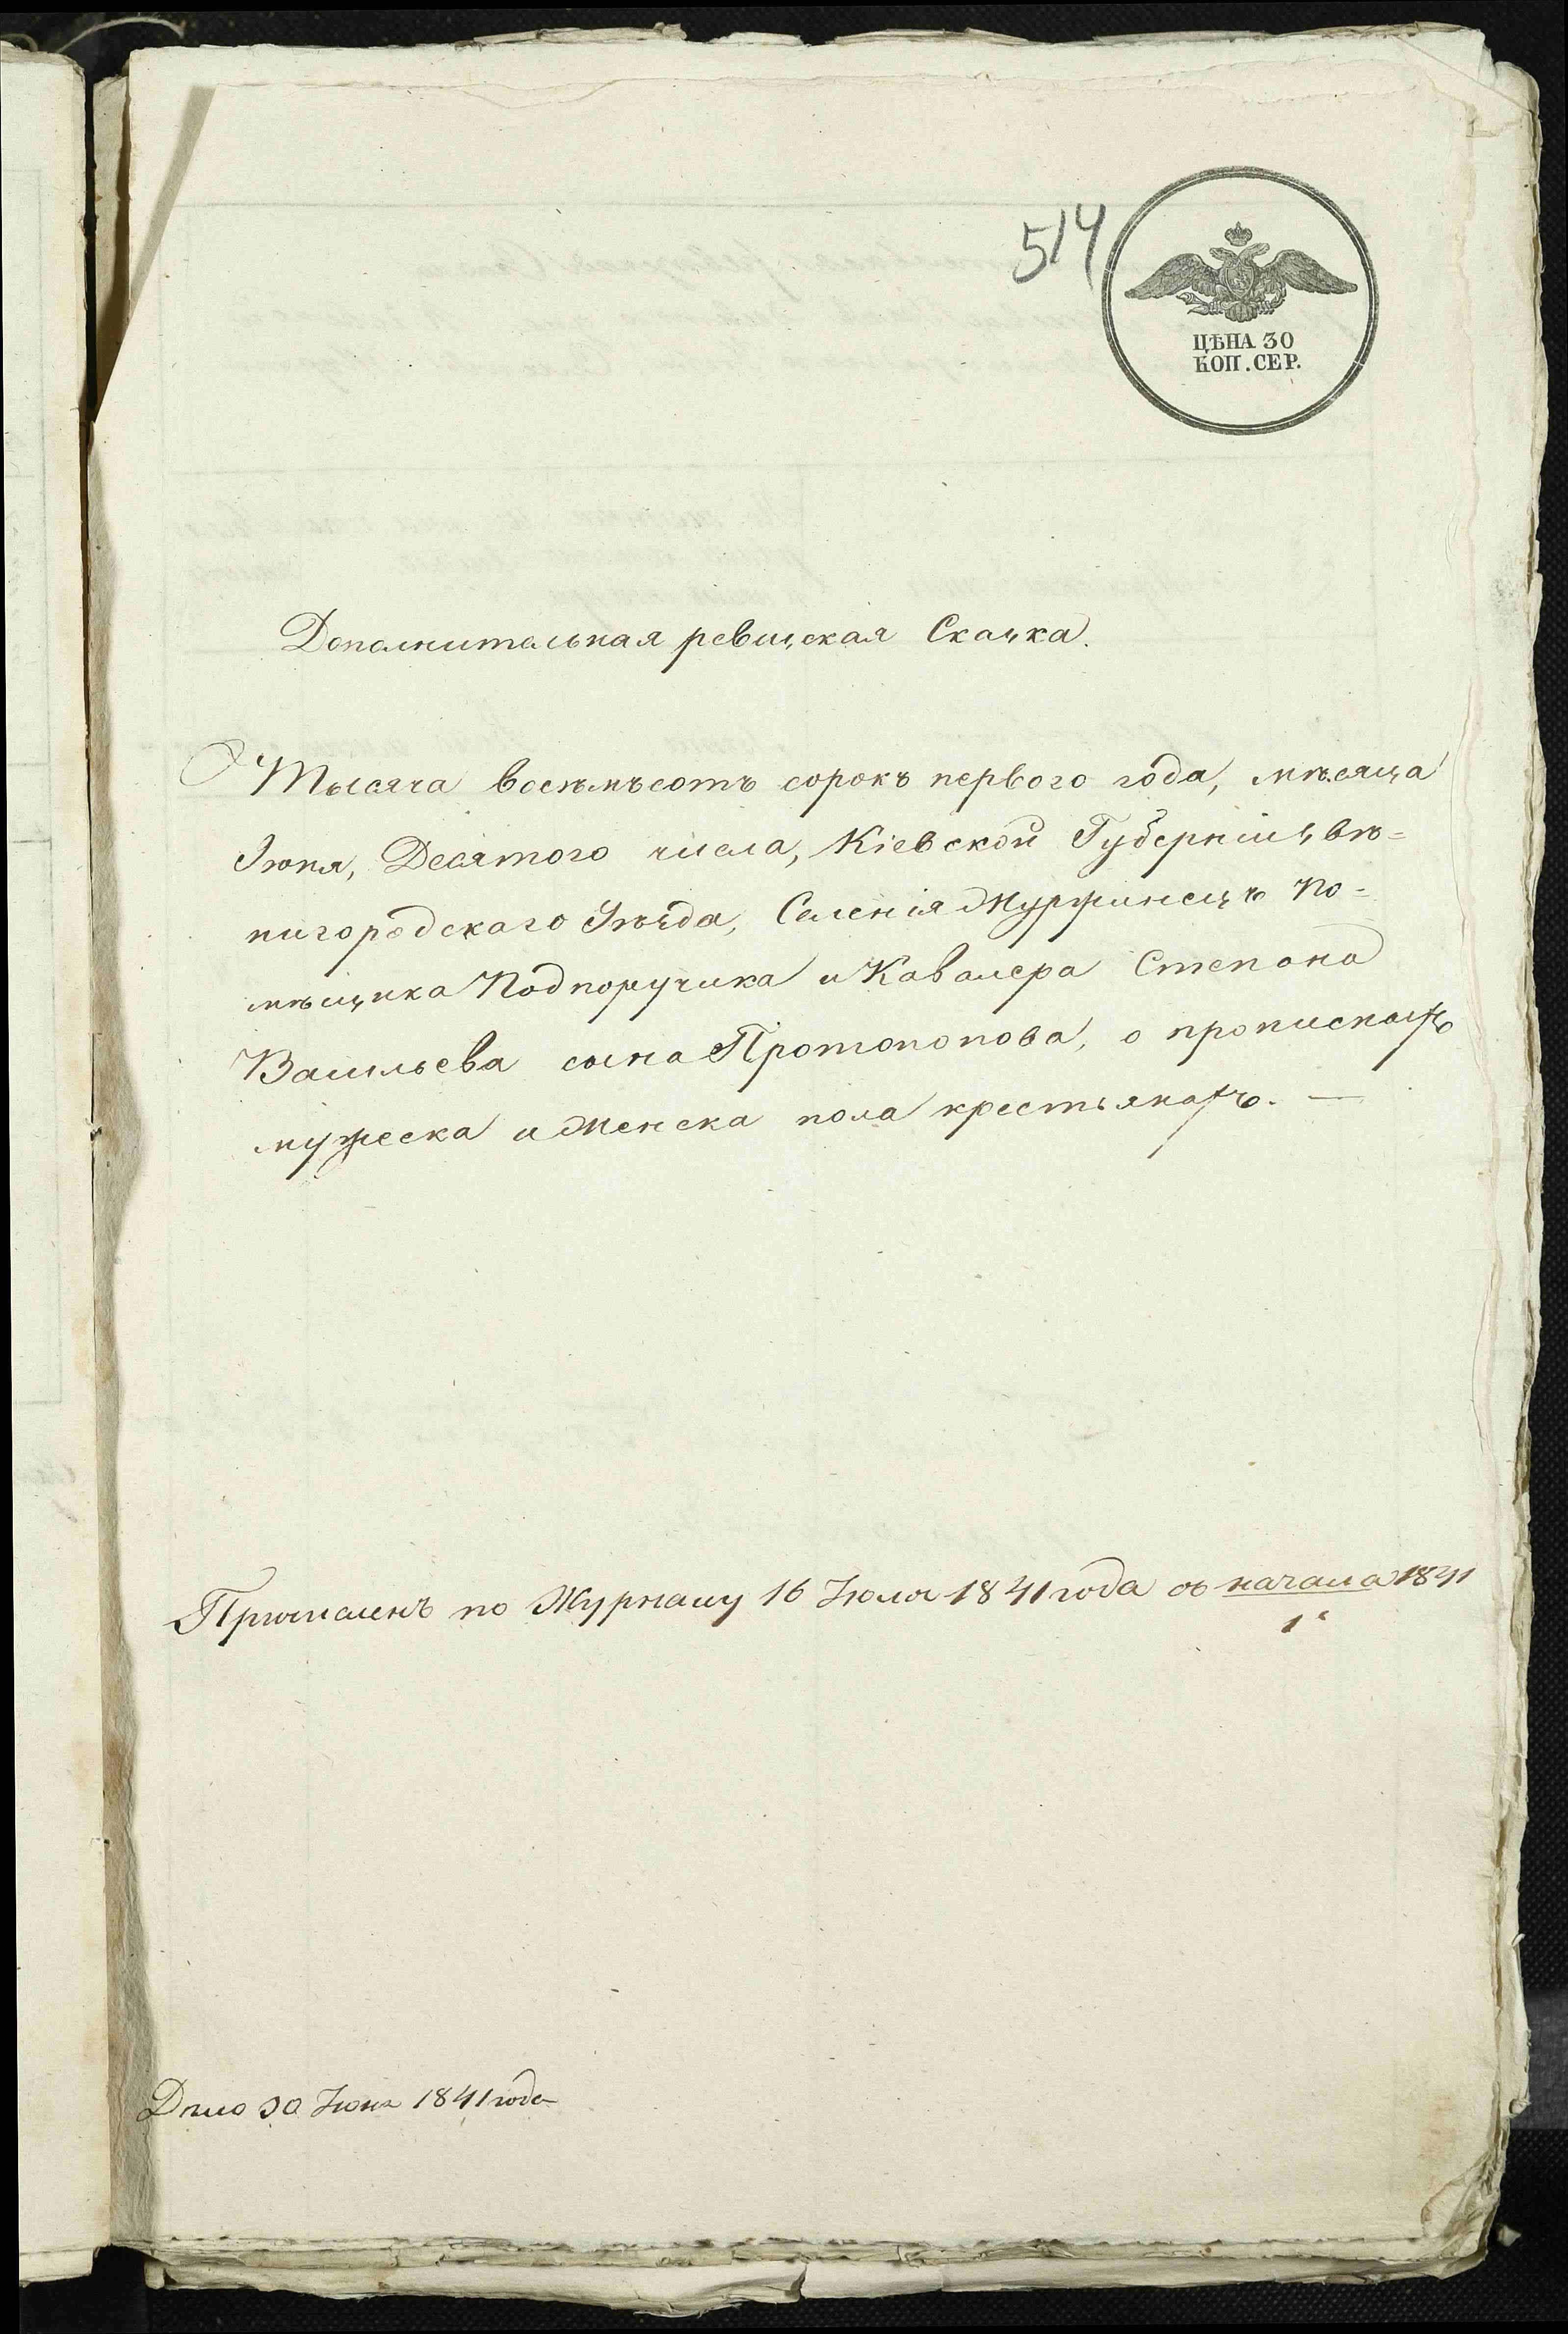 514
ЦѢНА 30
КОП. СЕР.
Дополнительная ревизская Сказка.
Тысяча восемьсотъ сорокъ перваго года, мѣсяца
Іюня, Десятого числа, Кіевской Губерніи, Звѣ-
нигородскаго Уѣзда, Селенія Журжинецъ По-
мѣщика Подпоручика и Кавалера Степана
Васильева сына Протопопова, о прописныхъ
мужеска и женска пола крестьянахъ. —
Причисленъ по Журналу 16 Іюля 1841 года съ начала 1841
Дѣло 30 Іюня 1841 года